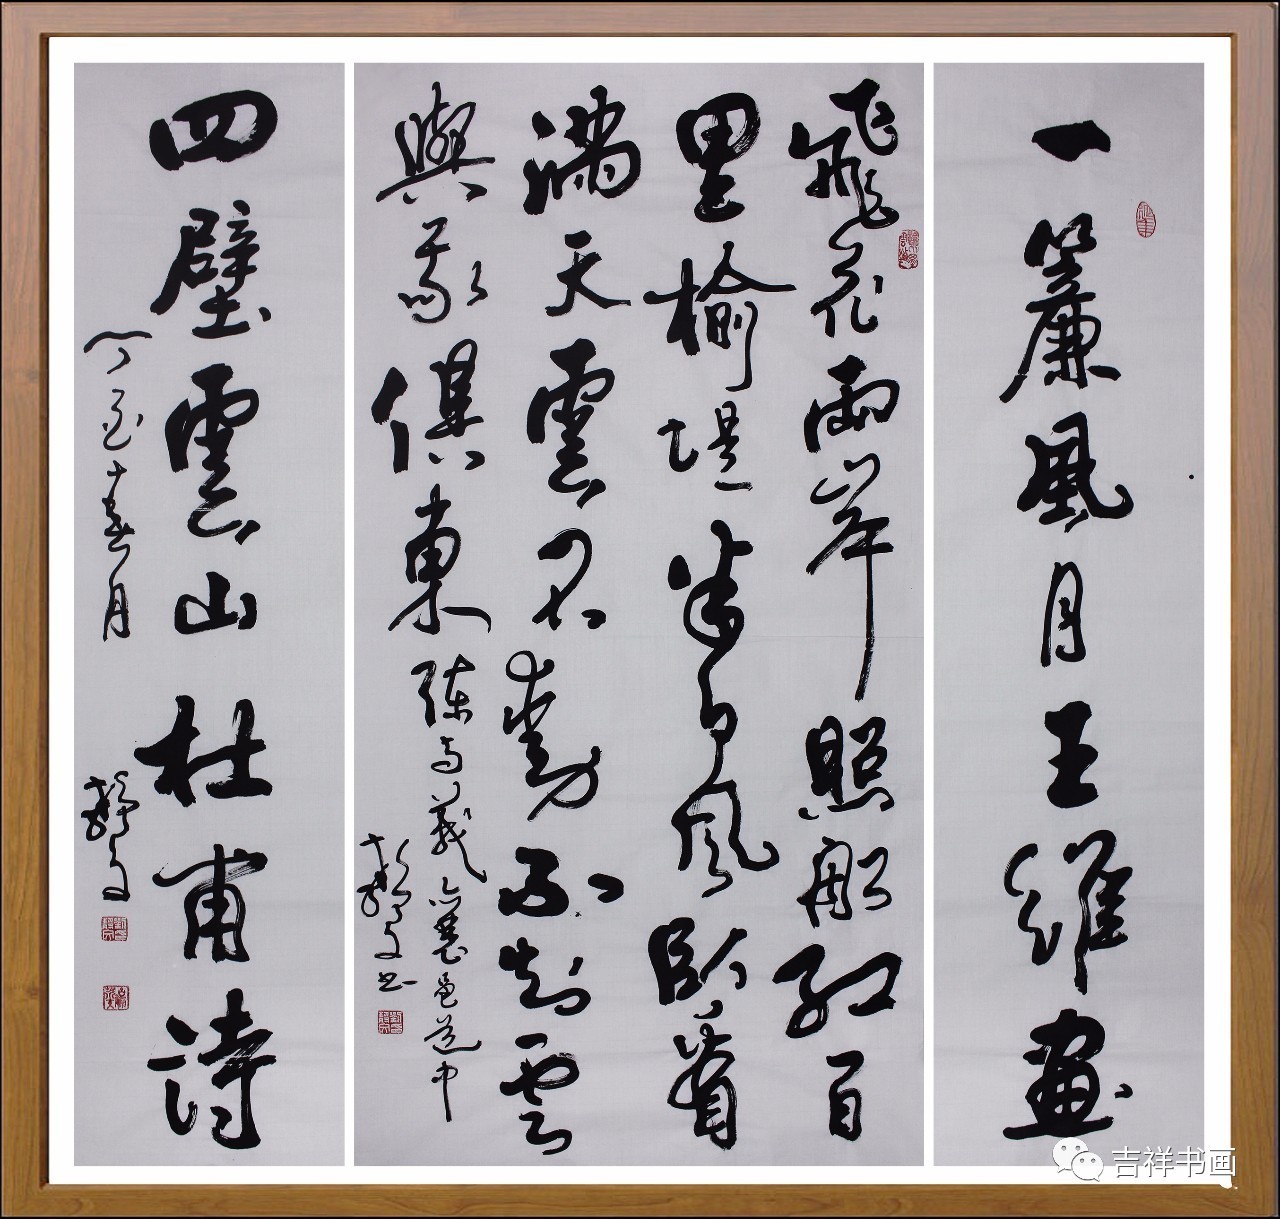 一簾風月王維畫
飛花兩岸照船紅百
里榆堤半日風卧看
滿天雲不動不知雲
與我俱東
陳与義襄邑道中
四壁雲山杜甫詩
吉祥书画